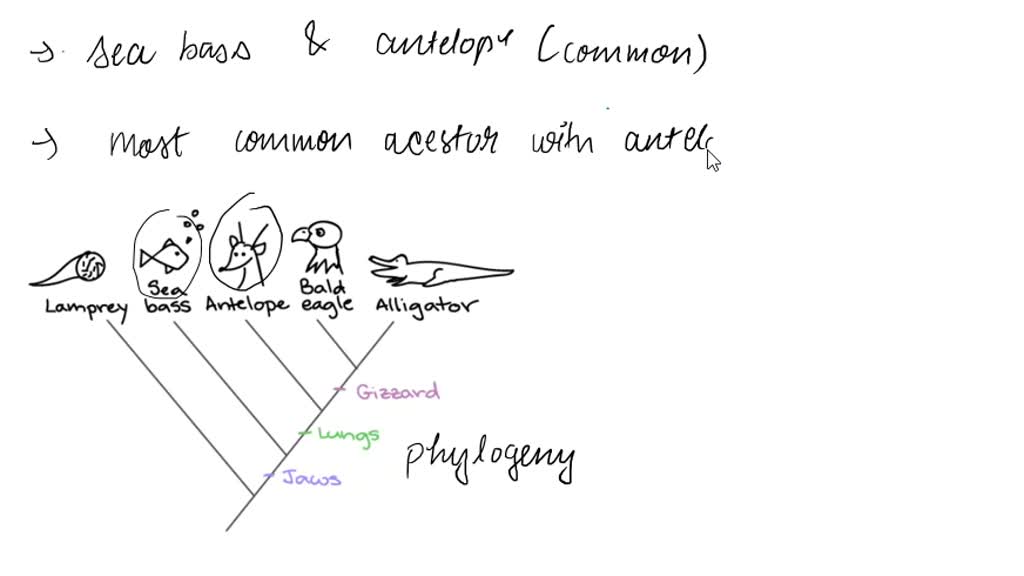 → sea bass & antelope (common)
→ most common acestor with antel
Lamprey Sea bass Antelope Bald eagle Alligator
Gizzard
Lungs
phylogeny
Jaws